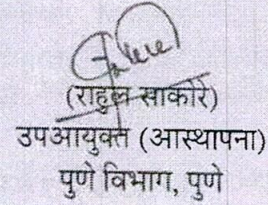 (राहुल साकोरे)
उपआयुक्त (आस्थापना)
पुणे विभाग, पुणे